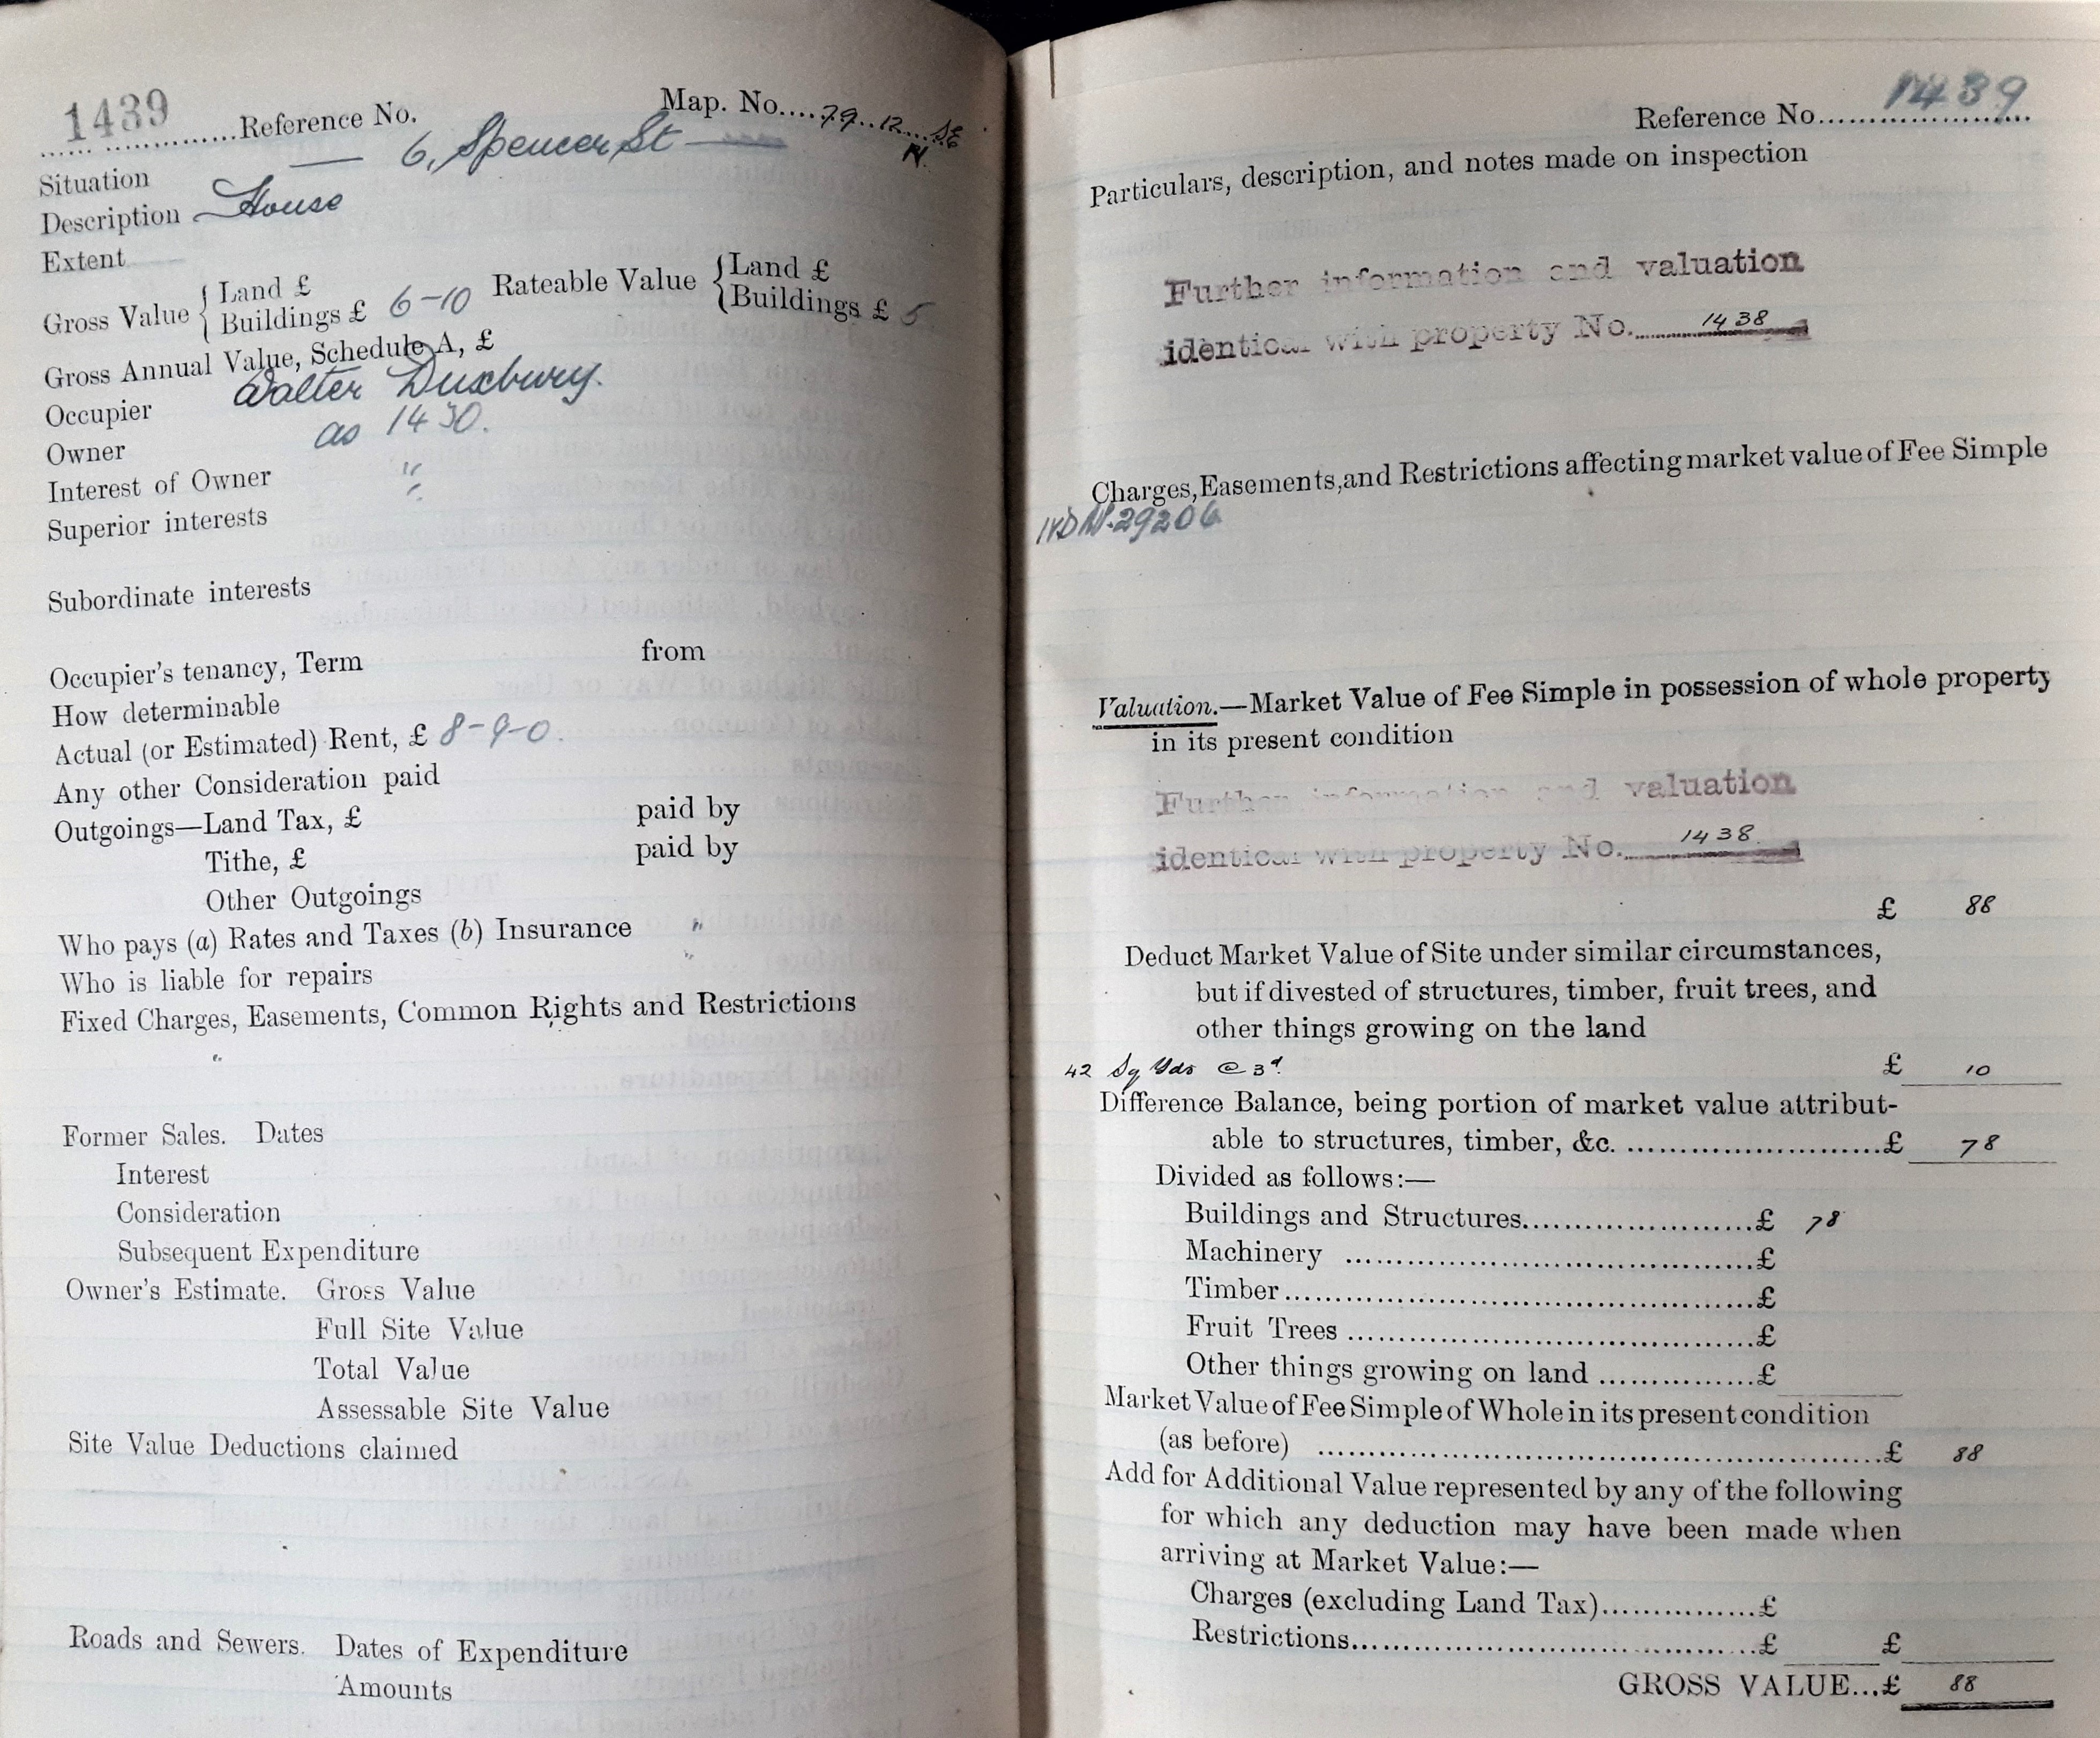 1439 Reference No. Map. No. 79 12 SE
N.
Situation — 6, Spencer St —
Description House
Extent
Gross Value { Land £
Buildings £ 6-10 Rateable Value { Land £
Buildings £ 5
Gross Annual Value, Schedule A, £
Occupier Walter Duxbury.
Owner as 1430.
Interest of Owner "
Superior interests "
Subordinate interests
Occupier's tenancy, Term from
How determinable
Actual (or Estimated) Rent, £ 8-9-0.
Any other Consideration paid
Outgoings—Land Tax, £ paid by
Tithe, £ paid by
Other Outgoings
Who pays (a) Rates and Taxes (b) Insurance "
Who is liable for repairs "
Fixed Charges, Easements, Common Rights and Restrictions
"
Former Sales. Dates
Interest
Consideration
Subsequent Expenditure
Owner's Estimate. Gross Value
Full Site Value
Total Value
Assessable Site Value
Site Value Deductions claimed
Roads and Sewers. Dates of Expenditure
Amounts
Reference No. 1439
Particulars, description, and notes made on inspection
Further information and valuation
identical with property No. 1438
Charges, Easements, and Restrictions affecting market value of Fee Simple
29206
Valuation.—Market Value of Fee Simple in possession of whole property
in its present condition
Further information and valuation
identical with property No. 1438.
£ 88
Deduct Market Value of Site under similar circumstances,
but if divested of structures, timber, fruit trees, and
other things growing on the land
42 Sq Yds @ 3d. £ 10
Difference Balance, being portion of market value attribut-
able to structures, timber, &c. £ 78
Divided as follows:—
Buildings and Structures £ 78
Machinery £
Timber £
Fruit Trees £
Other things growing on land £
Market Value of Fee Simple of Whole in its present condition
(as before) £ 88
Add for Additional Value represented by any of the following
for which any deduction may have been made when
arriving at Market Value:—
Charges (excluding Land Tax) £
Restrictions £ £
GROSS VALUE...£ 88